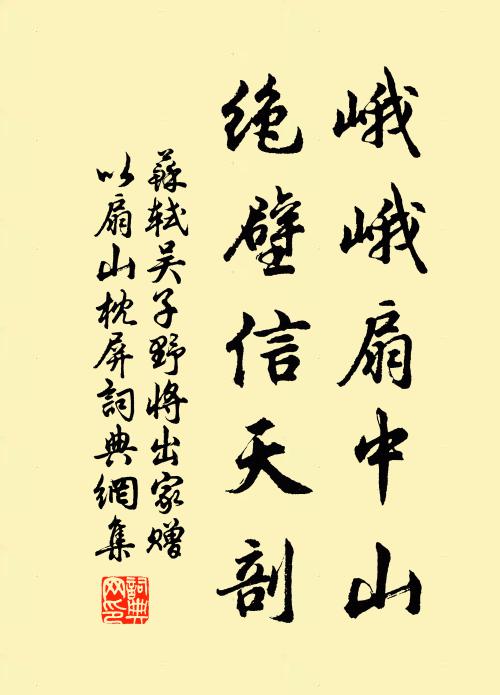 峨峨扇中山
绝壁信天剖
蘇軾吴子野將出家赠
以扇山枕屏詞典網集